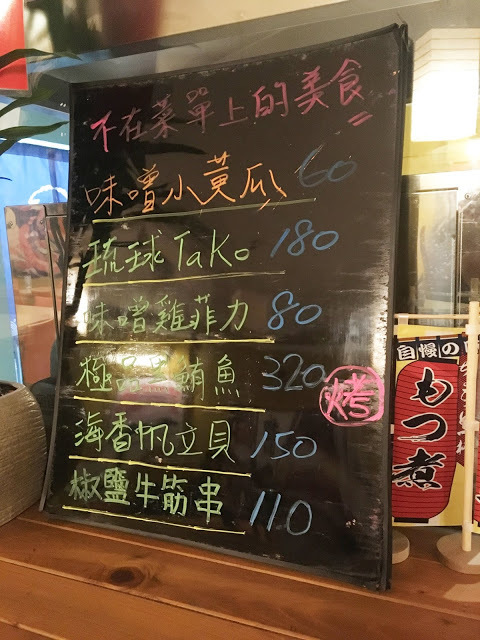 不在菜單上的美食
味噌小黃瓜 60
琉球Tako 180
味噌雞菲力 80
極品 鮪魚 320
烤
海香帆立貝 150
椒鹽牛筋串 110
自慢の
もつ煮